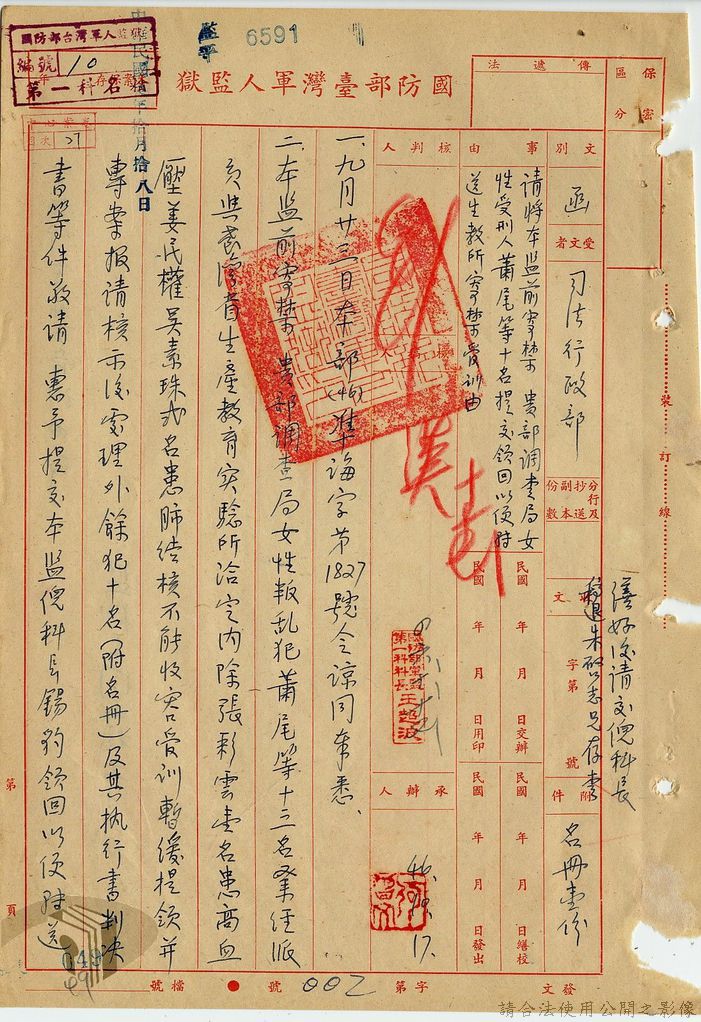 國防部台灣軍人監獄
編號 10
第一科
6591
國防部臺灣軍人監獄
傳遞法
保密區分
中華民國
拾月拾八日
文別 函
受文者 司法行政部
分行及抄送副本份數
附件 名冊壹份
事由
請將本監前寄禁貴部調查局女
性受刑人蕭尾等十名提交領回以便轉
送生教所寄禁受訓由
核判人
承辦人
民國 年 月 日交辦
民國 年 月 日繕校
民國 年 月 日用印
民國 年 月 日發出
第一科科長王超波
46.10.17.
繕好後請交倪科長
一、九月廿三日本部(46)準誨字第1827號令諒同奉悉、
二、本監前寄禁 貴部調查局女性叛亂犯蕭尾等十三名業經派
員與臺灣省生產教育實驗所洽定內除張彩雲壹名患高血
壓姜民權吳素珠弍名患肺結核不能收容受訓暫緩提領并
專案报請核示後處理外餘犯十名(附名冊)及其执行書判决
書等件敬請 惠予提交本監倪科長錫豹領回以便轉送
裝
訂
線
第 頁
049
檔號
號
002
字第
發文
請合法使用公開之影像